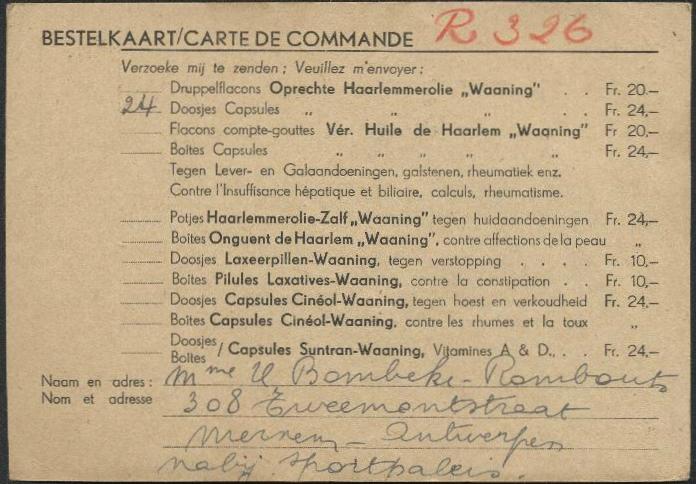 BESTELKAART/CARTE DE COMMANDE R 326
Verzoeke mij te zenden ; Veuillez m'envoyer :
Druppelflacons Oprechte Haarlemmerolie „Waaning" . . Fr. 20.—
24 Doosjes Capsules „ „ „ . . Fr. 24,—
Flacons compte-gouttes Vér. Huile de Haarlem „Waaning" Fr 20.—
Boîtes Capsules „ „ „ „ „ Fr. 24,—
Tegen Lever- en Galaandoeningen, galstenen, rheumatiek enz.
Contre l'Insuffisance hépatique et biliaire, calculs, rheumatisme.
Potjes Haarlemmerolie-Zalf „Waaning" tegen huidaandoeningen Fr. 24,—
Boîtes Onguent de Haarlem „Waaning", contre affections de la peau „
Doosjes Laxeerpillen-Waaning, tegen verstopping . . . . Fr. 10,—
Boîtes Pilules Laxatives-Waaning, contre la constipation . . Fr. 10,—
Doosjes Capsules Cinéol-Waaning, tegen hoest en verkoudheid Fr. 24.—
Boîtes Capsules Cinéol-Waaning, contre les rhumes et la toux „
Doosjes
Boîtes / Capsules Suntran-Waaning, Vitamines A & D., . . Fr. 24.—
Naam en adres : Mme U Bombeke-Rombouts
Nom et adresse 308 Tweemontstraat
Merxem - Antwerpen
nabij Sportpaleis.